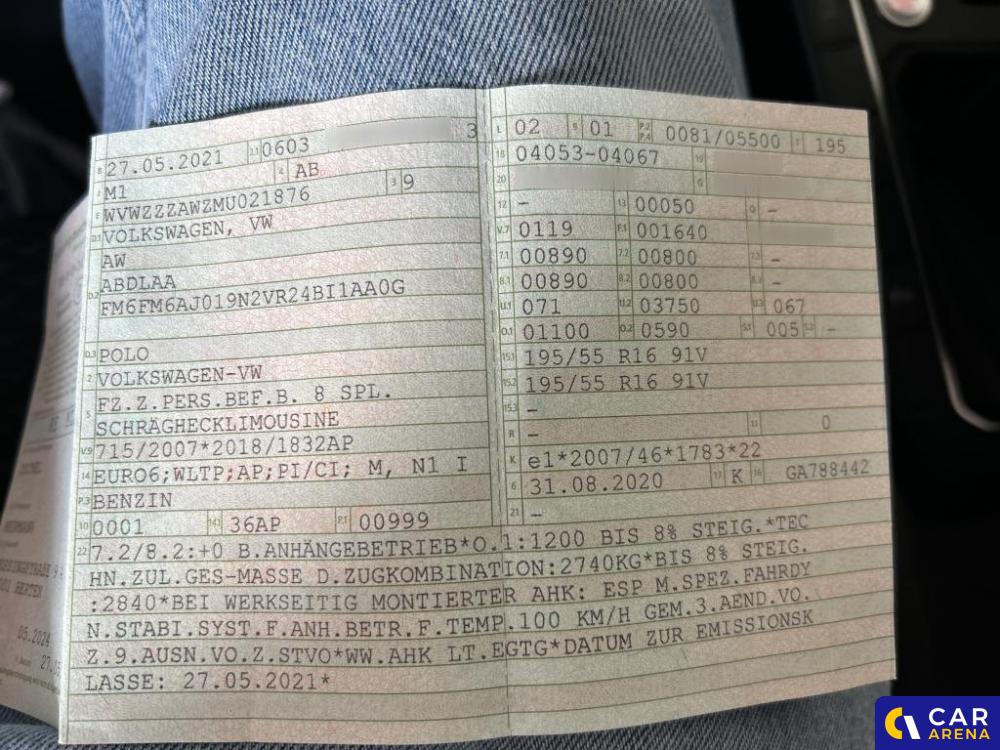 B 27.05.2021 2.1 0603 3
J M1 4 AB
E WVWZZZAWZMU021876 3 9
D.1 VOLKSWAGEN, VW
AW
D.2 ABDLAA
FM6FM6AJ019N2VR24BI1AA0G
D.3 POLO
2 VOLKSWAGEN-VW
5 FZ.Z.PERS.BEF.B. 8 SPL.
SCHRÄGHECKLIMOUSINE
V.9 715/2007*2018/1832AP
14 EURO6;WLTP;AP;PI/CI; M, N1 I
P.3 BENZIN
10 0001 14.1 36AP P.1 00999
L 02 9 01 P.2 P.4 0081/05500 T 195
18 04053-04067 19
20 G
12 - 13 00050 Q -
V.7 0119 F.1 001640
7.1 00890 7.2 00800 7.3 -
8.1 00890 8.2 00800 8.3 -
U.1 071 U.2 03750 U.3 067
O.1 01100 O.2 0590 S.1 005 S.2 -
15.1 195/55 R16 91V
15.2 195/55 R16 91V
15.3 -
R - 11 0
K e1*2007/46*1783*22
6 31.08.2020 17 K 16 GA788442
21 -
22 7.2/8.2:+0 B.ANHÄNGEBETRIEB*O.1:1200 BIS 8% STEIG.*TEC
HN.ZUL.GES-MASSE D.ZUGKOMBINATION:2740KG*BIS 8% STEIG.
:2840*BEI WERKSEITIG MONTIERTER AHK: ESP M.SPEZ.FAHRDY
N.STABI.SYST.F.ANH.BETR.F.TEMP.100 KM/H GEM.3.AEND.VO.
Z.9.AUSN.VO.Z.STVO*WW.AHK LT.EGTG*DATUM ZUR EMISSIONSK
LASSE: 27.05.2021*
HERTEN
05.2024
CAR
ARENA